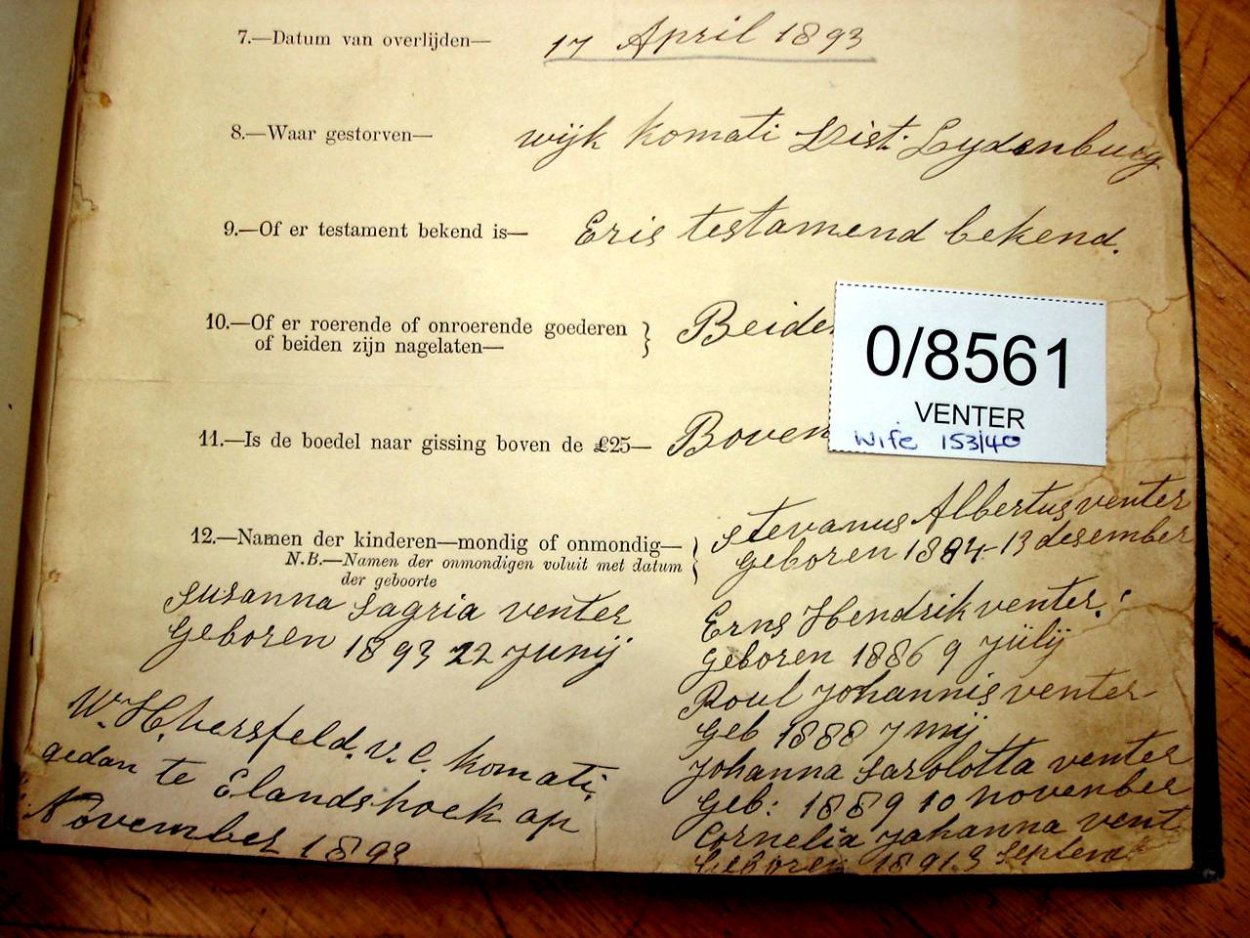 7.—Datum van overlijden— 17 April 1893
8.—Waar gestorven— wijk Komati Dist: Lydenburg
9.—Of er testament bekend is— Eris testamend bekend.
10.—Of er roerende of onroerende goederen
of beiden zijn nagelaten—
} Beide
0/8561
VENTER
wife 153/40
11.—Is de boedel naar gissing boven de £25— Boven
12.—Namen der kinderen—mondig of onmondig—
N.B.—Namen der onmondigen voluit met datum
der geboorte
stevanus Albertus venter
Geboren 1884-13 desember
Erns Hendrik venter
Geboren 1886 9 Jülij
Poul Johannis venter
Geb 1888 7 mij
Johanna Sarolotta venter
Geb: 1889 10 november
Cornelia Johanna vent
Geboren 1891.3 Septem
Susanna Sagria venter
Geboren 1893 22 Junij
W. H. v. C. Komati
gedan te Elandshoek op
November 1893